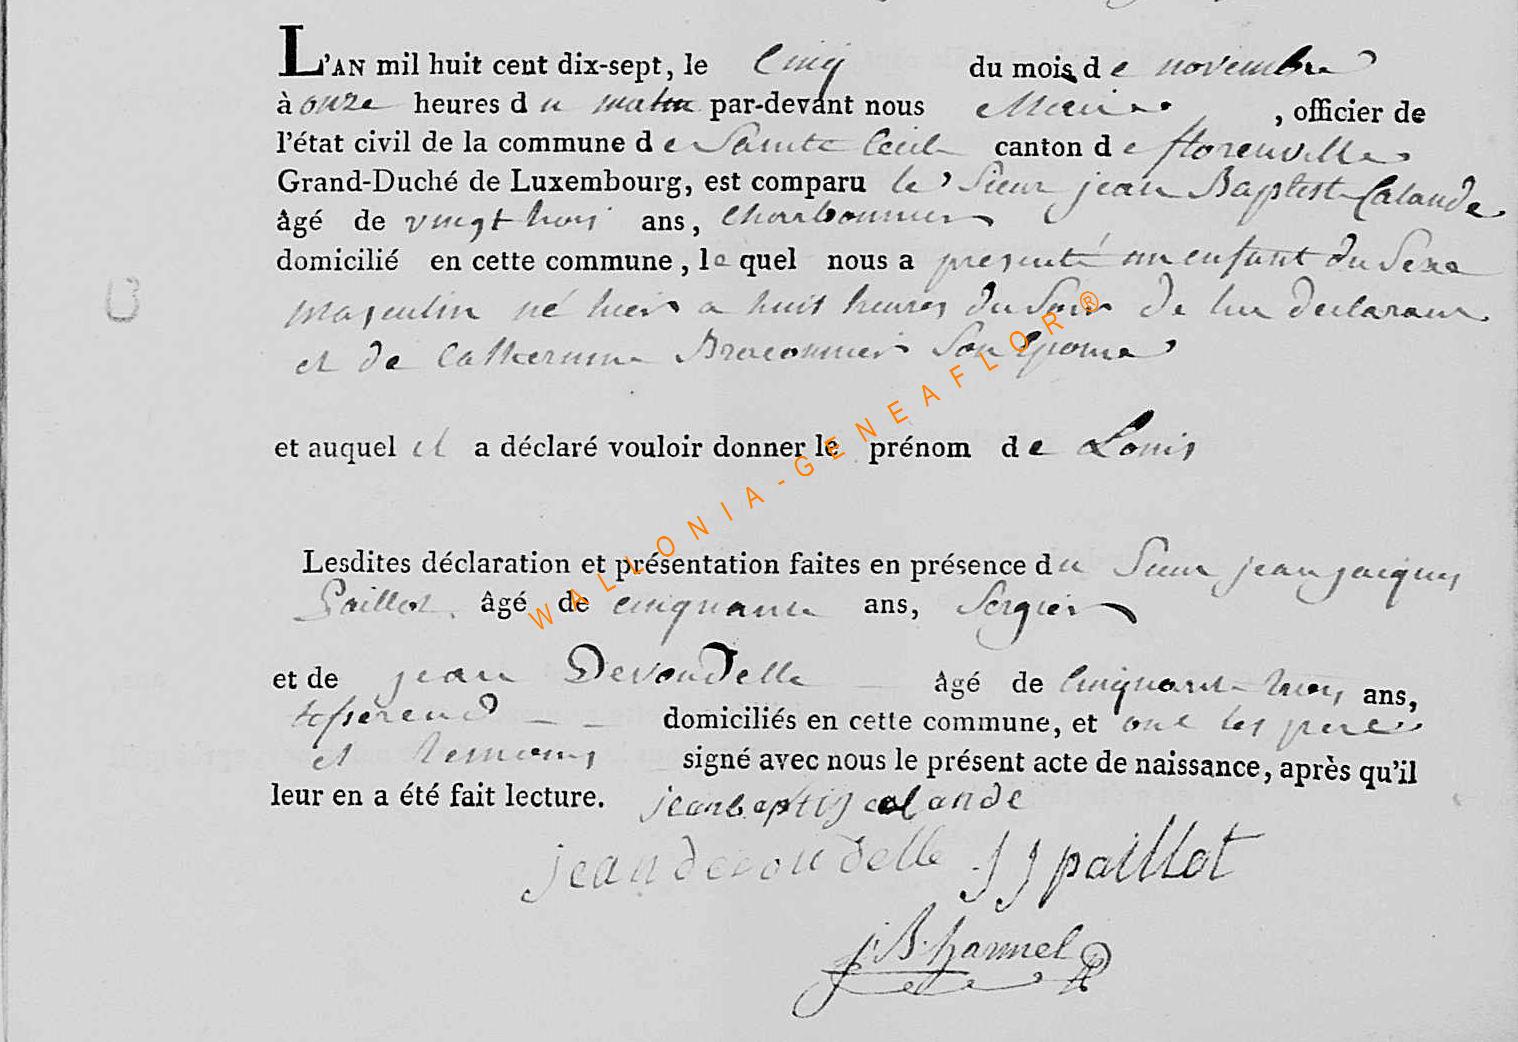 L'AN mil huit cent dix-sept, le Cinq du mois de novembre
à onze heures du matin par-devant nous Maire, officier de
l'état civil de la commune de Sainte Cecile canton de florenville
Grand-Duché de Luxembourg, est comparu le Sieur jean Baptist Calande
âgé de vingt trois ans, Charbonnier
domicilié en cette commune, lequel nous a presenté un enfant du Sexe
masculin né hier a huit heures du Soir de lui declarant
et de Catherinne Braconnier Son Epouse
et auquel il a déclaré vouloir donner le prénom de Louis
Lesdites déclaration et présentation faites en présence du Sieur jean jacques
Paillot âgé de cinquante ans, Sergier
et de jean Devoudelle âgé de Cinquante trois ans,
tisserand domiciliés en cette commune, et ont les pere
et temoins signé avec nous le présent acte de naissance, après qu'il
leur en a été fait lecture. jean baptis calande
jean devoudelle JJ paillot
J.B. hannel
WALLONIA-GENEAFLOR®